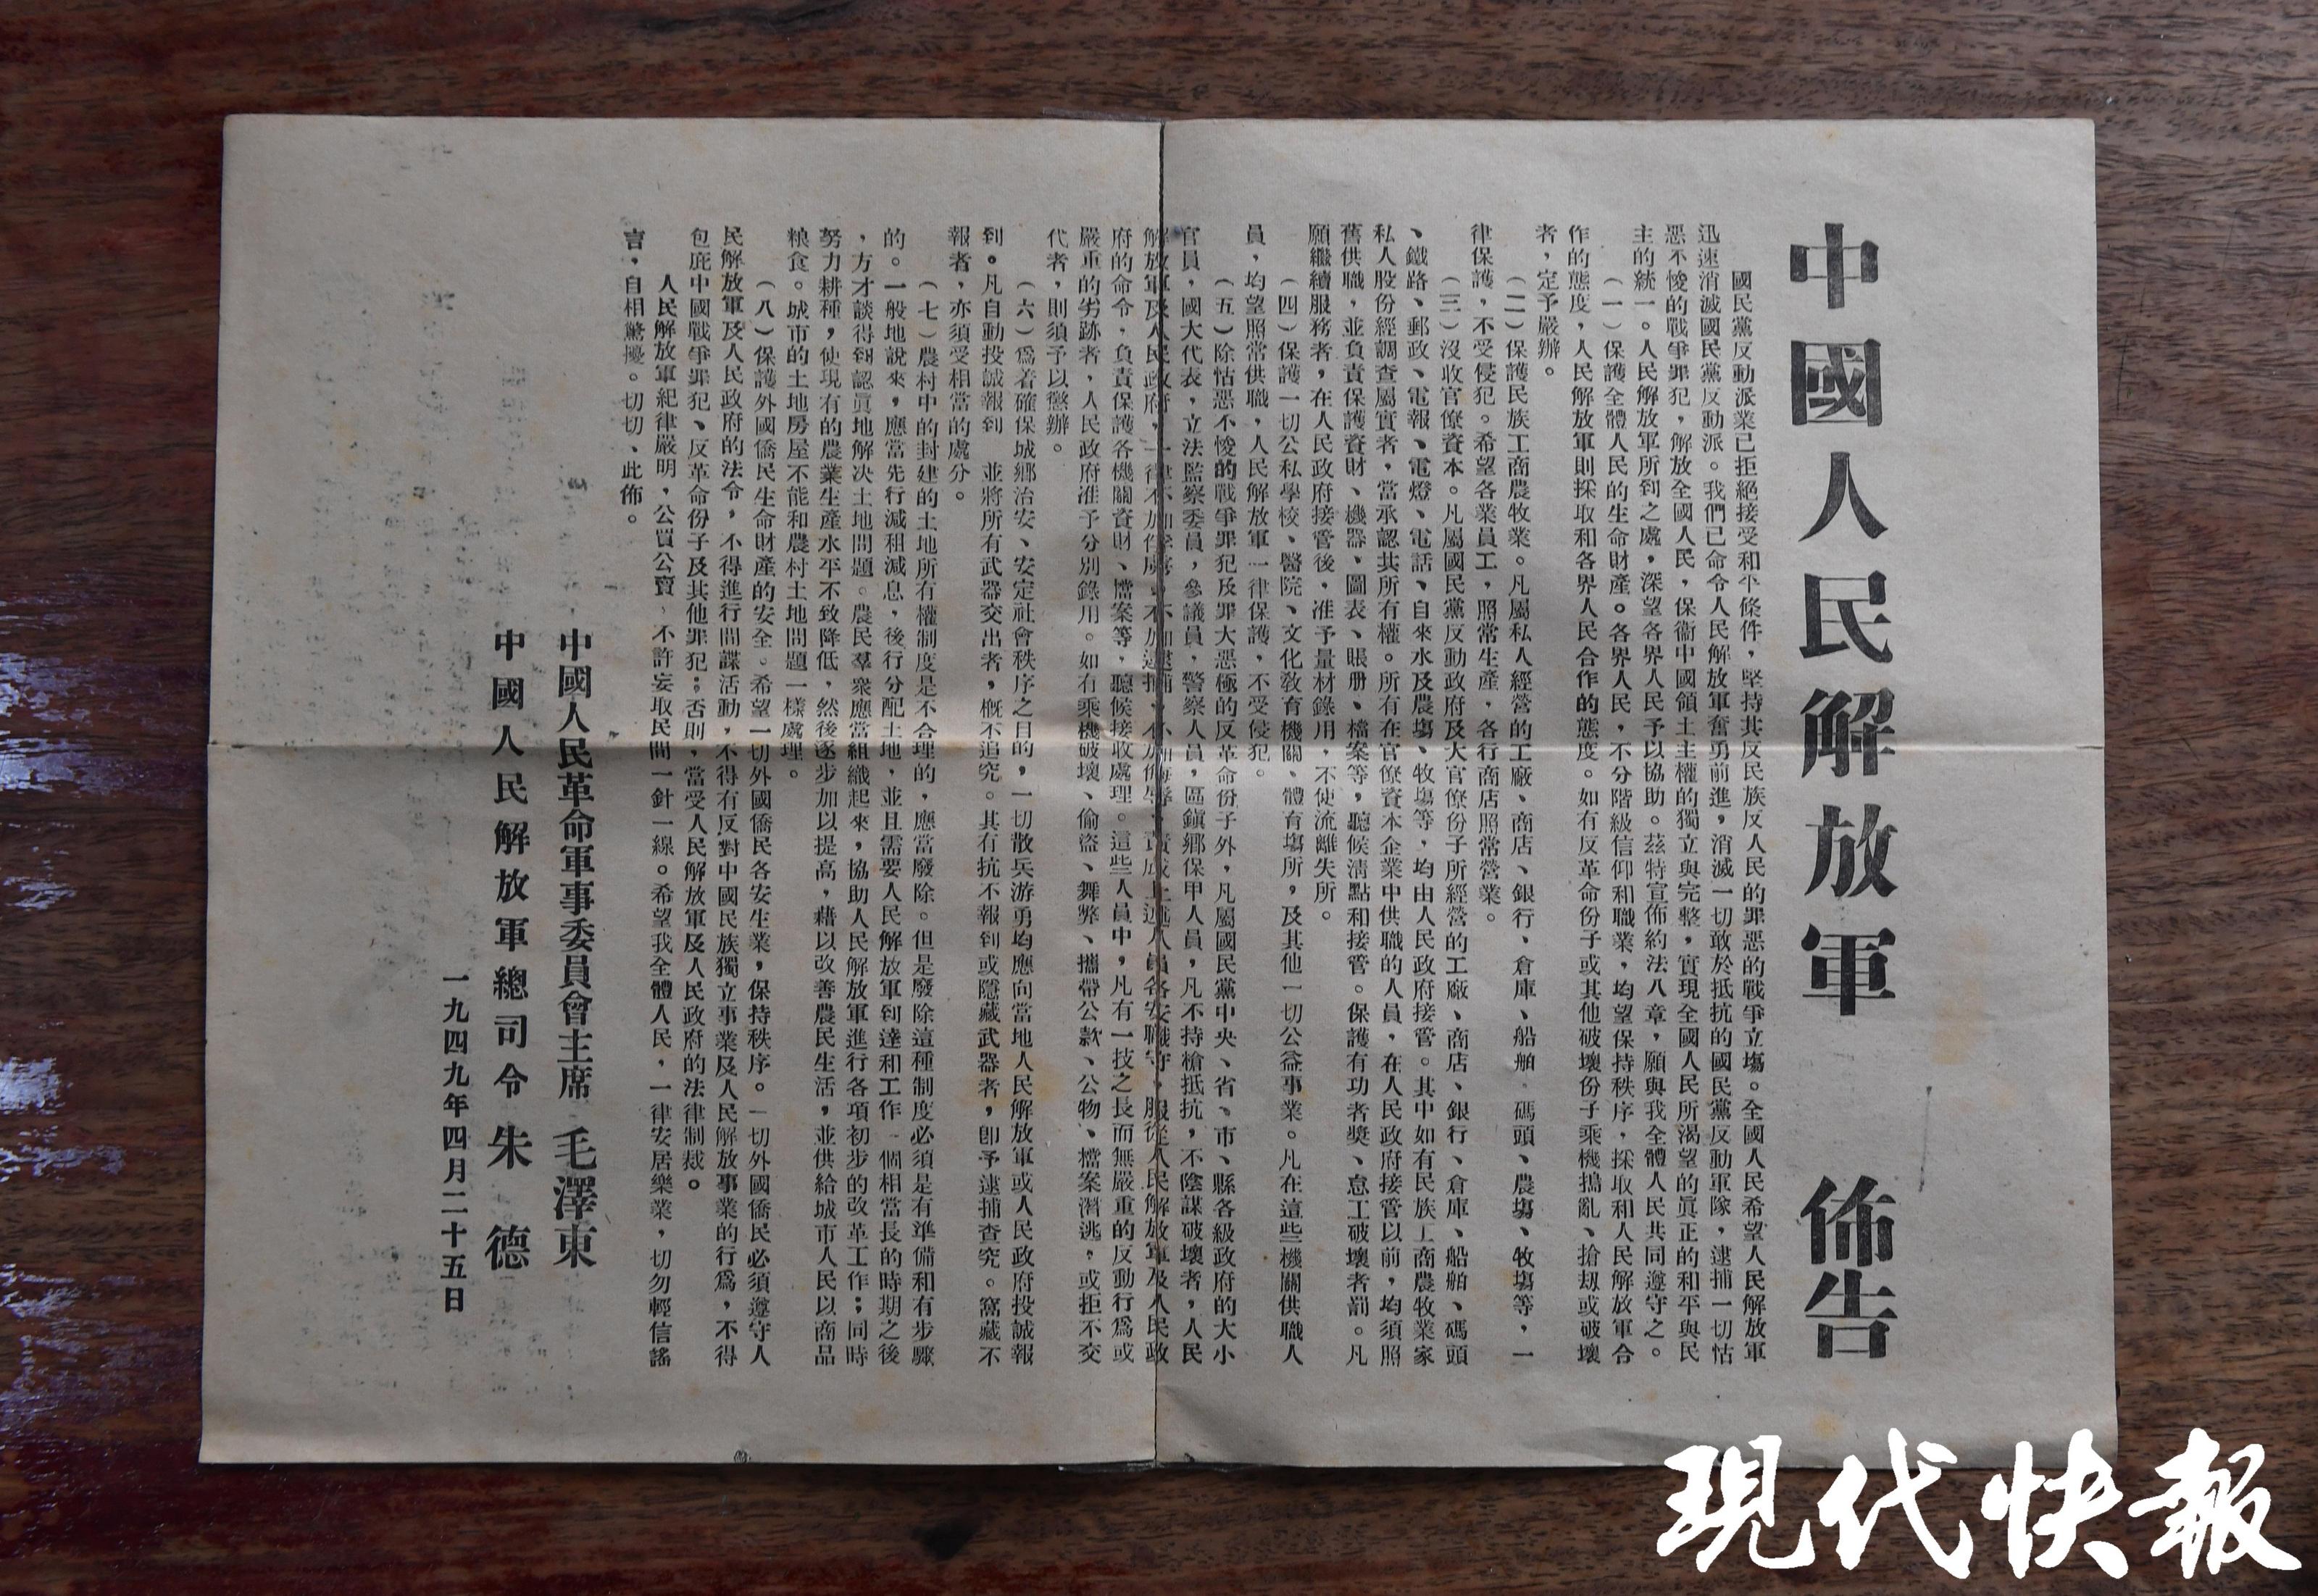 中國人民解放軍 佈告
國民黨反動派業已拒絕接受和平條件，堅持其反民族反人民的罪惡的戰爭立場。全國人民希望人民解放軍
迅速消滅國民黨反動派。我們已命令人民解放軍奮勇前進，消滅一切敢於抵抗的國民黨反動軍隊，逮捕一切怙
惡不悛的戰爭罪犯，解放全國人民，保衞中國領土主權的獨立與完整，實現全國人民所渴望的眞正的和平與民
主的統一。人民解放軍所到之處，深望各界人民予以協助。茲特宣佈約法八章，願與我全體人民共同遵守之。
（一）保護全體人民的生命財產。各界人民，不分階級信仰和職業，均望保持秩序，採取和人民解放軍合
作的態度，人民解放軍則採取和各界人民合作的態度。如有反革命份子或其他破壞份子乘機搗亂、搶刼或破壞
者，定予嚴辦。
（二）保護民族工商農牧業。凡屬私人經營的工廠、商店、銀行、倉庫、船舶、碼頭、農場、牧場等，一
律保護，不受侵犯。希望各業員工，照常生產，各行商店照常營業。
（三）沒收官僚資本。凡屬國民黨反動政府及大官僚份子所經營的工廠、商店、銀行、倉庫、船舶、碼頭
、鐵路、郵政、電報、電燈、電話、自來水及農場、牧場等，均由人民政府接管。其中如有民族工商農牧業家
私人股份經調查屬實者，當承認其所有權。所有在官僚資本企業中供職的人員，在人民政府接管以前，均須照
舊供職，並負責保護資財、機器、圖表、賬册、檔案等，聽候清點和接管。保護有功者獎，怠工破壞者罰。凡
願繼續服務者，在人民政府接管後，准予量材錄用，不使流離失所。
（四）保護一切公私學校、醫院、文化敎育機關、體育場所，及其他一切公益事業。凡在這些機關供職人
員，均望照常供職，人民解放軍一律保護，不受侵犯。
（五）除怙惡不悛的戰爭罪犯及罪大惡極的反革命份子外，凡屬國民黨中央、省、市、縣各級政府的大小
官員，國大代表，立法監察委員，參議員，警察人員，區鎭鄉保甲人員，凡不持槍抵抗，不陰謀破壞者，人民
解放軍及人民政府，一律不加俘虜，不加逮捕，不加侮辱。責成上述人員各安職守，服從人民解放軍及人民政
府的命令，負責保護各機關資財、檔案等，聽候接收處理。這些人員中，凡有一技之長而無嚴重的反動行爲或
嚴重的劣跡者，人民政府准予分別錄用。如有乘機破壞、偷盜、舞弊、攜帶公款、公物、檔案潛逃，或拒不交
代者，則須予以懲辦。
（六）爲着確保城鄉治安、安定社會秩序之目的，一切散兵游勇均應向當地人民解放軍或人民政府投誠報
到。凡自動投誠報到 並將所有武器交出者，槪不追究。其有抗不報到或隱藏武器者，卽予逮捕查究。窩藏不
報者，亦須受相當的處分。
（七）農村中的封建的土地所有權制度是不合理的，應當廢除。但是廢除這種制度必須是有準備和有步驟
的。一般地說來，應當先行減租減息，後行分配土地，並且需要人民解放軍到達和工作一個相當長的時期之後
，方才談得到認眞地解决土地問題。農民羣衆應當組織起來，協助人民解放軍進行各項初步的改革工作；同時
努力耕種，使現有的農業生產水平不致降低，然後逐步加以提高，藉以改善農民生活，並供給城市人民以商品
粮食。城市的土地房屋不能和農村土地問題一樣處理。
（八）保護外國僑民生命財產的安全。希望一切外國僑民各安生業，保持秩序。一切外國僑民必須遵守人
民解放軍及人民政府的法令，不得進行間諜活動，不得有反對中國民族獨立事業及人民解放事業的行爲，不得
包庇中國戰爭罪犯、反革命份子及其他罪犯；否則，當受人民解放軍及人民政府的法律制裁。
人民解放軍紀律嚴明，公買公賣，不許妄取民間一針一線。希望我全體人民，一律安居樂業，切勿輕信謠
言，自相驚擾。切切、此佈。
中國人民革命軍事委員會主席 毛澤東
中國人民解放軍總司令 朱德
一九四九年四月二十五日
現代快報